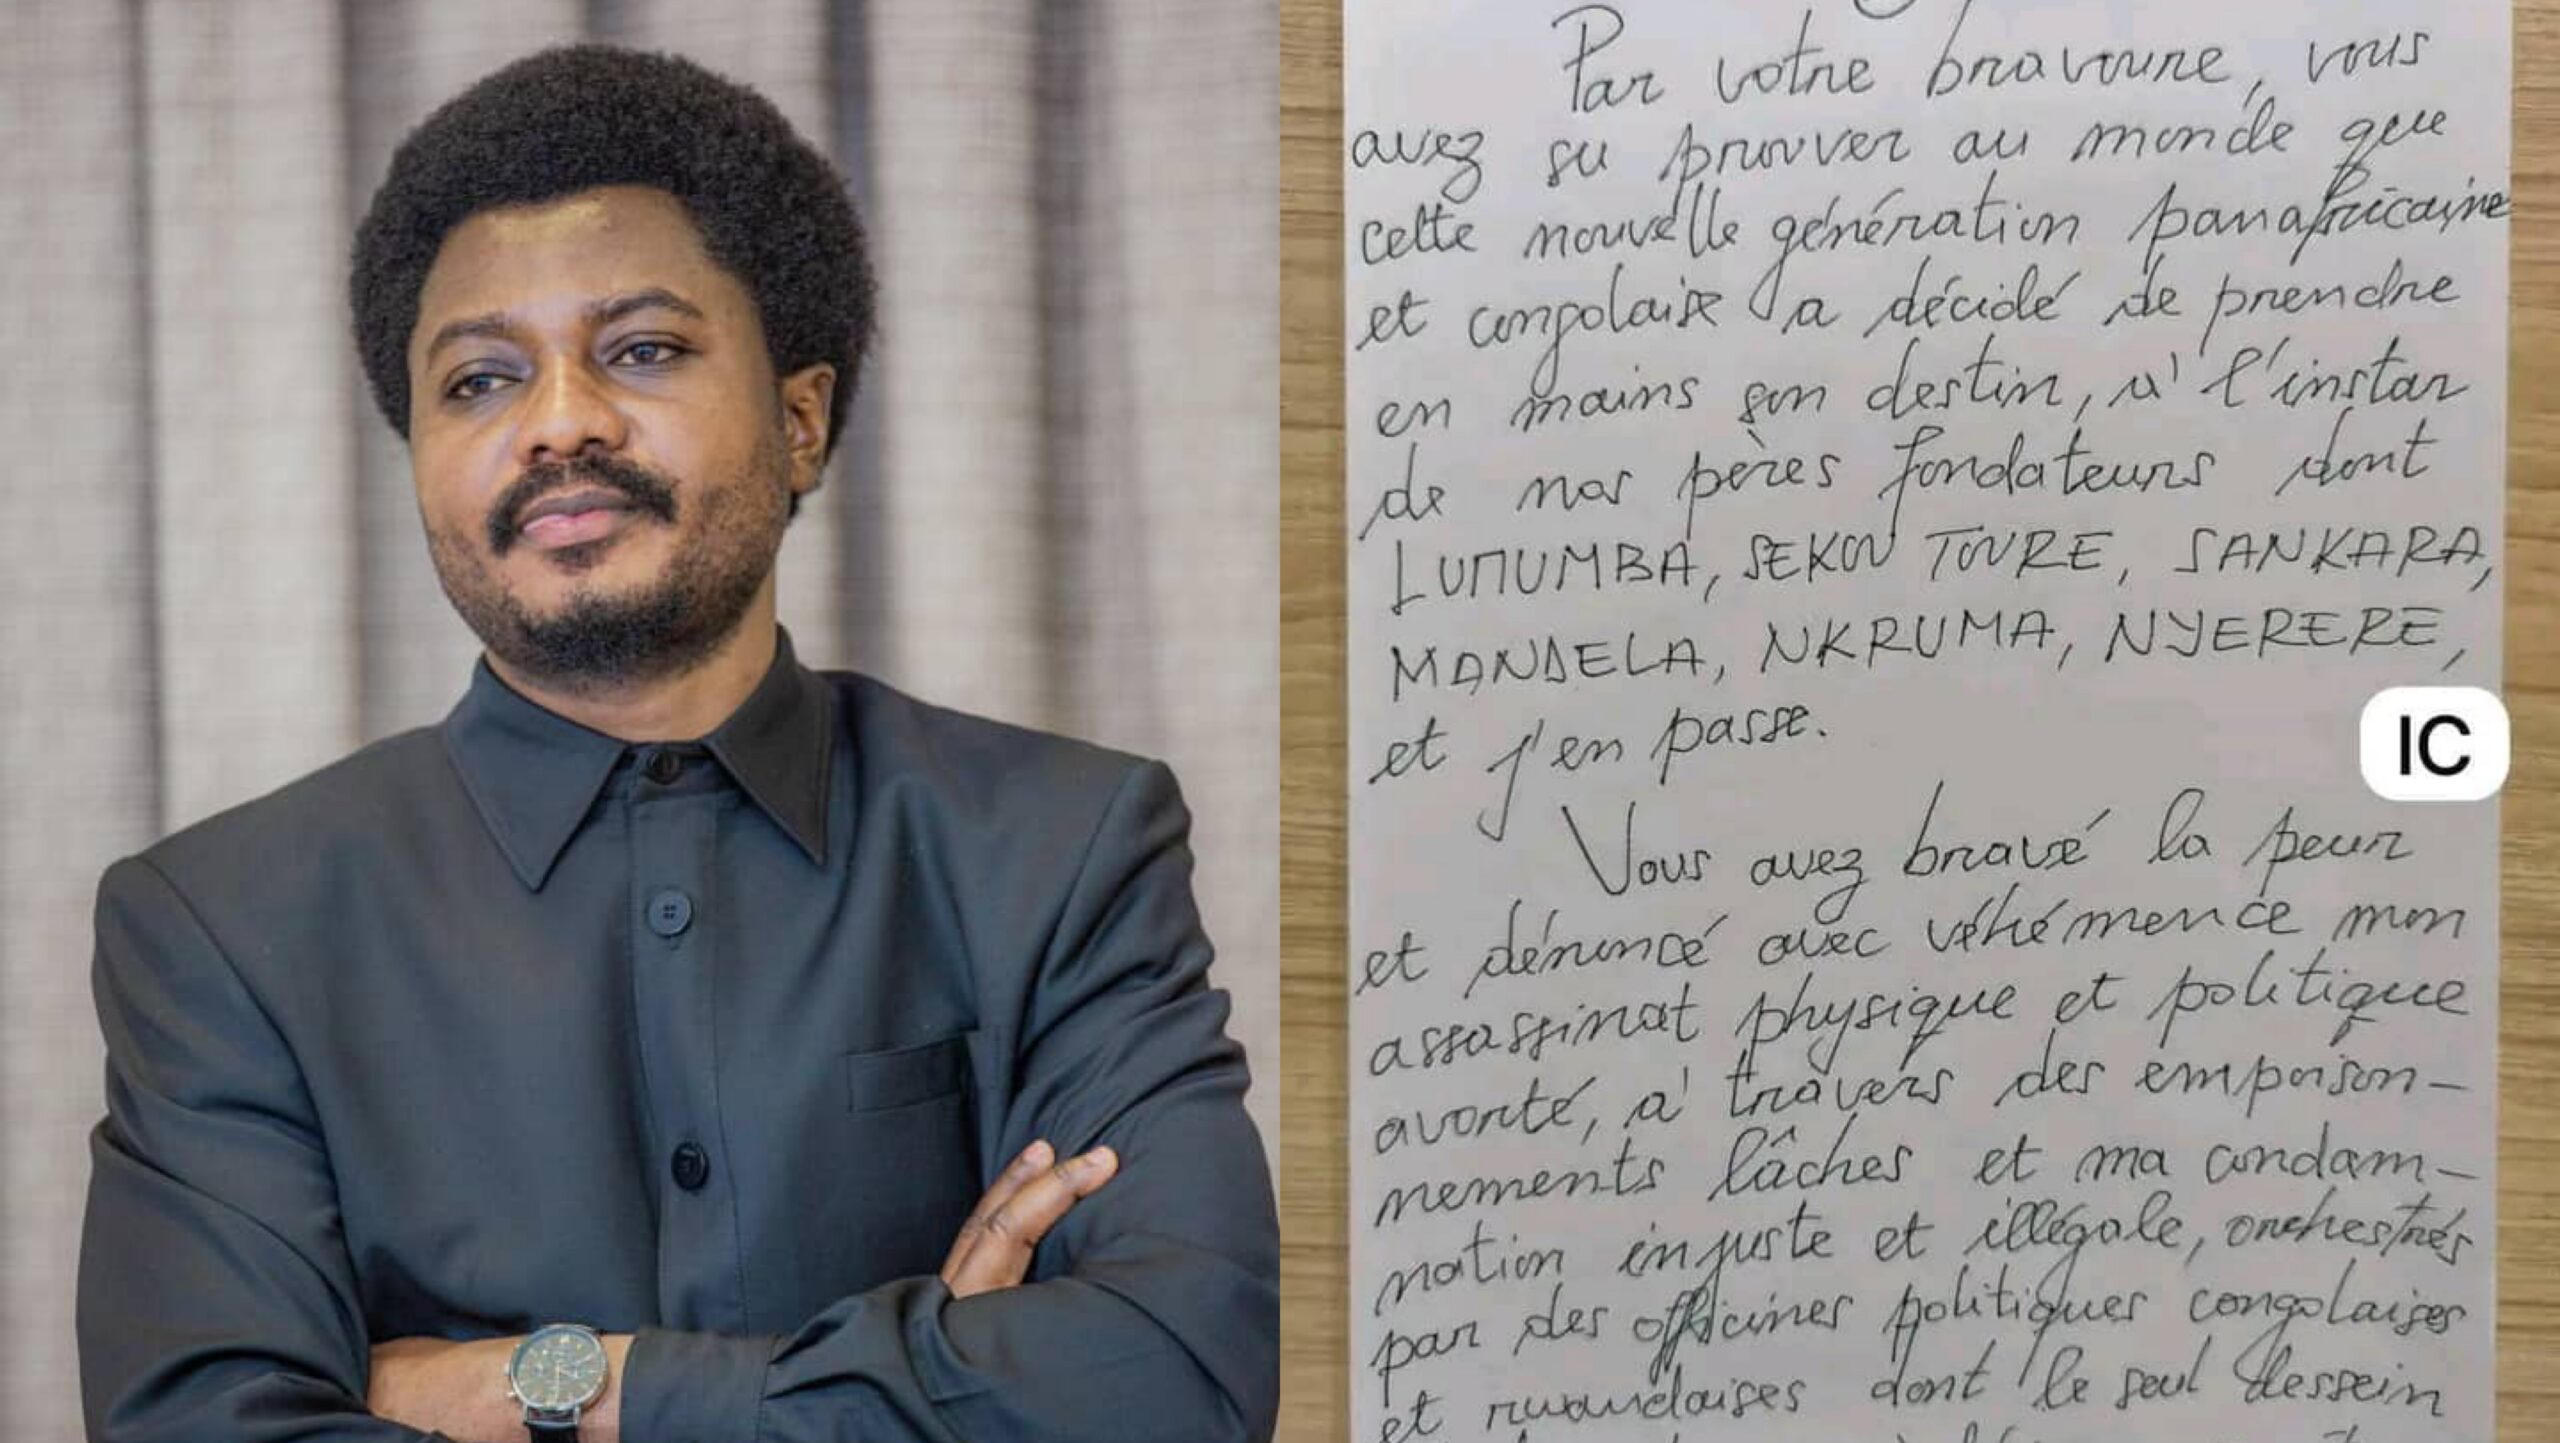 Par votre bravoure, vous
avez su prouver au monde que
cette nouvelle génération panafricaine
et congolaise a décidé de prendre
en mains son destin, à l'instar
de nos pères fondateurs dont
LUMUMBA, SEKOU TOURE, SANKARA,
MANDELA, NKRUMA, NYERERE,
et j'en passe.
IC
Vous avez bravé la peur
et dénoncé avec véhémence mon
assassinat physique et politique
avorté, à travers des empoison-
nements lâches et ma condam-
nation injuste et illégale, orchestrés
par des officines politiques congolaises
et rwandaises dont le seul dessein